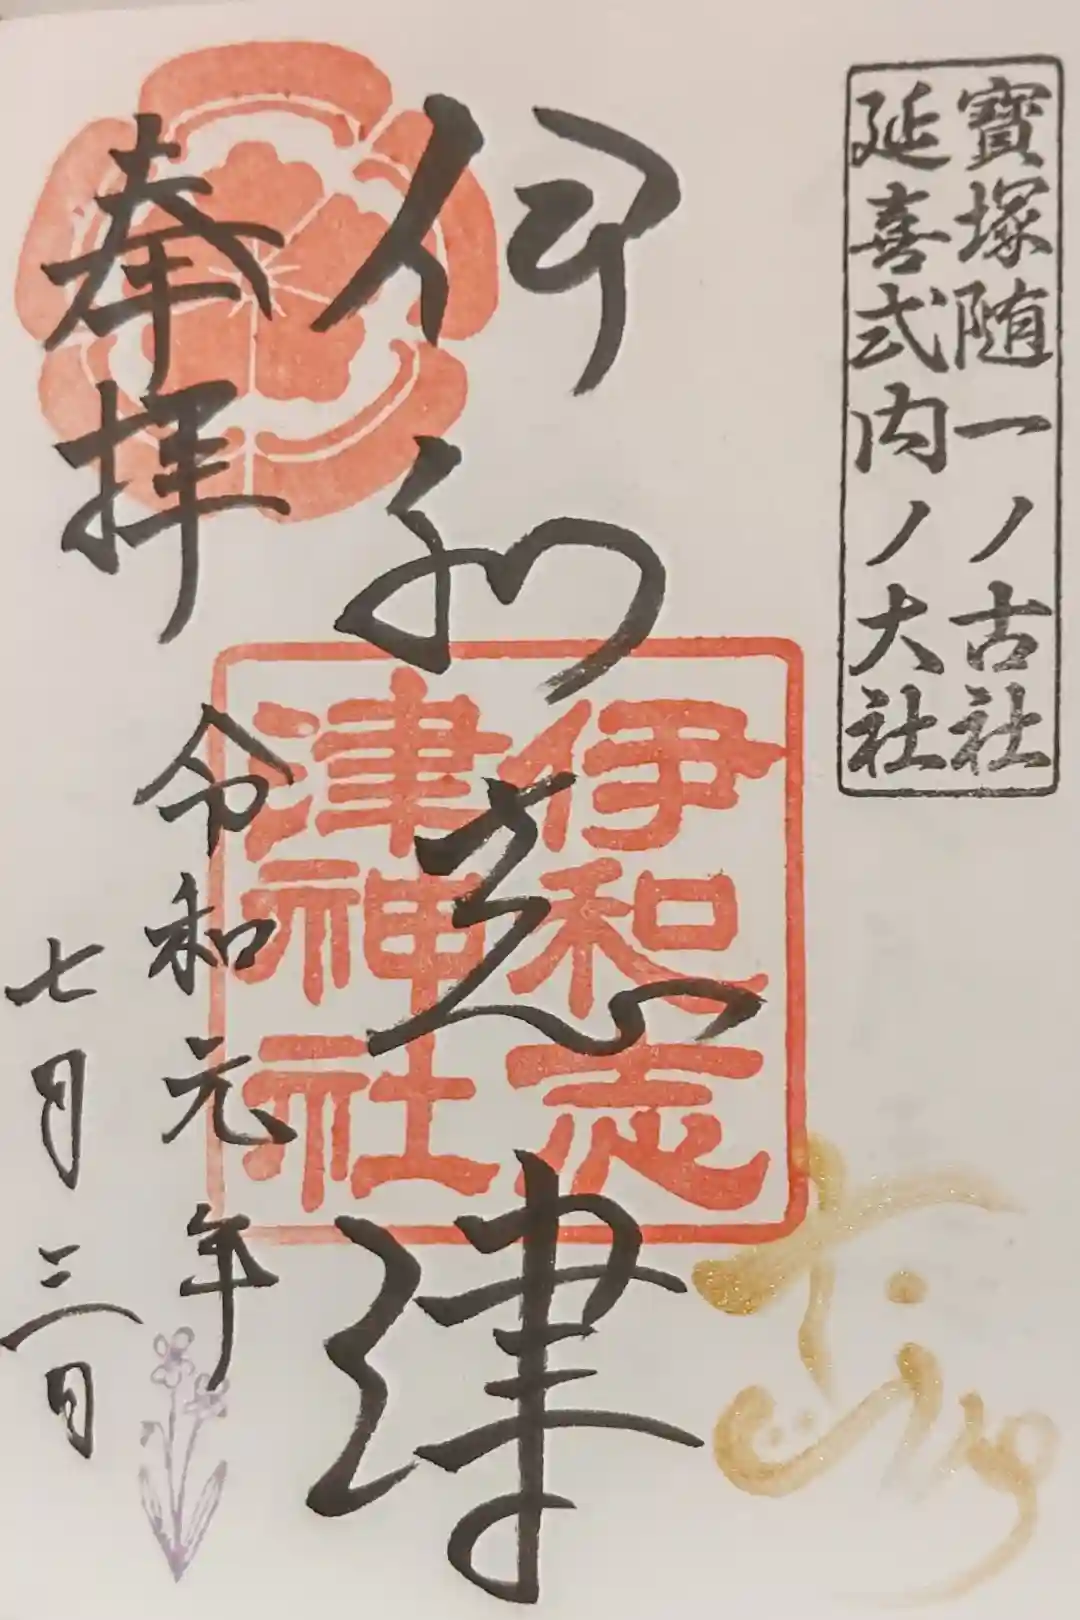 寶塚随一ノ古社
延喜式内ノ大社
伊和志津
伊和志
津神社
奉拝
令和元年
七月三日